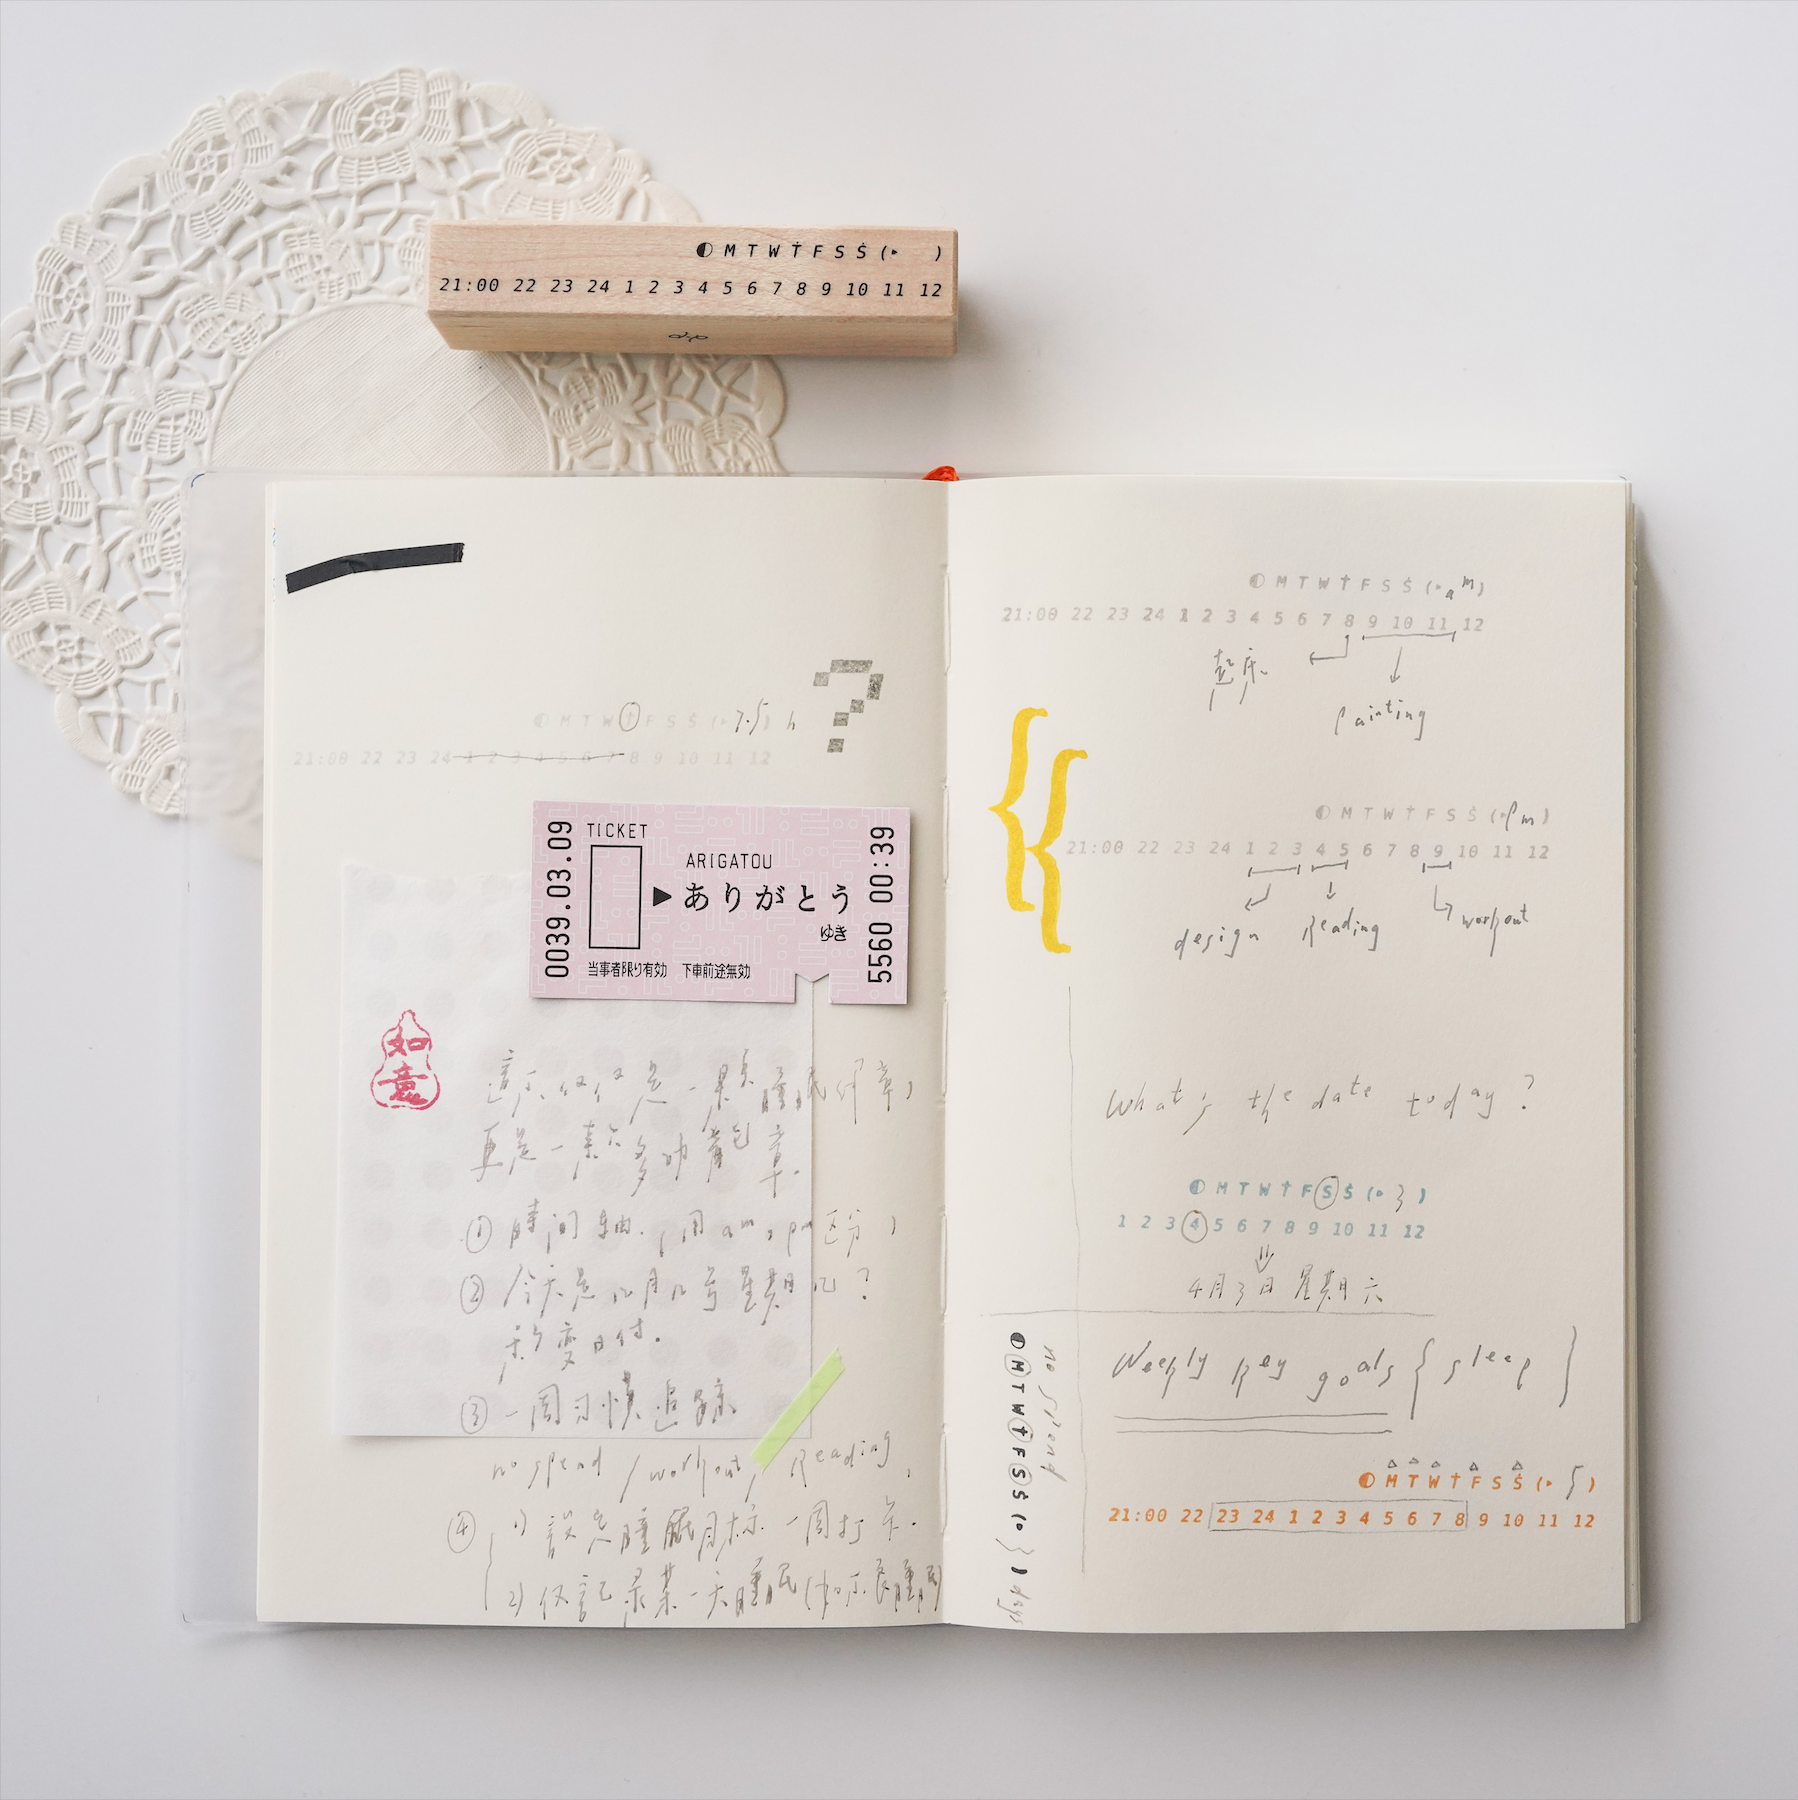 ◐ M T W T F S S (・ )
21:00 22 23 24 1 2 3 4 5 6 7 8 9 10 11 12
◐ M T W T F S S (・7.5) h
?
21:00 22 23 24 1 2 3 4 5 6 7 8 9 10 11 12
0039.03.09
TICKET
ARIGATOU
▶ありがとう
ゆき
当事者限り有効 下車前途無効
5560 00:39
如意
這不僅僅是一顆睡眠印章,
更是一款多功能章.
① 時间轴. 用am,pm区分,
② 今天是几月几号星期几?
秒变日付.
③ 一周习慣追蹤
no spend / workout, Reading,
④ 1) 設定睡眠目标 一周打卡.
2) 仅記录某一天睡眠
◐ M T W T F S S (・am)
21:00 22 23 24 1 2 3 4 5 6 7 8 9 10 11 12
起床
painting
{{
◐ M T W T F S S (・pm)
21:00 22 23 24 1 2 3 4 5 6 7 8 9 10 11 12
design Reading workout
What's the date today?
◐ M T W T F S S (・3)
1 2 3 4 5 6 7 8 9 10 11 12
4月3日 星期六
no spend
◐ M T W T F S S (・3) days
Weekly key goals { sleep }
◐ M T W T F S S (・5)
21:00 22 23 24 1 2 3 4 5 6 7 8 9 10 11 12